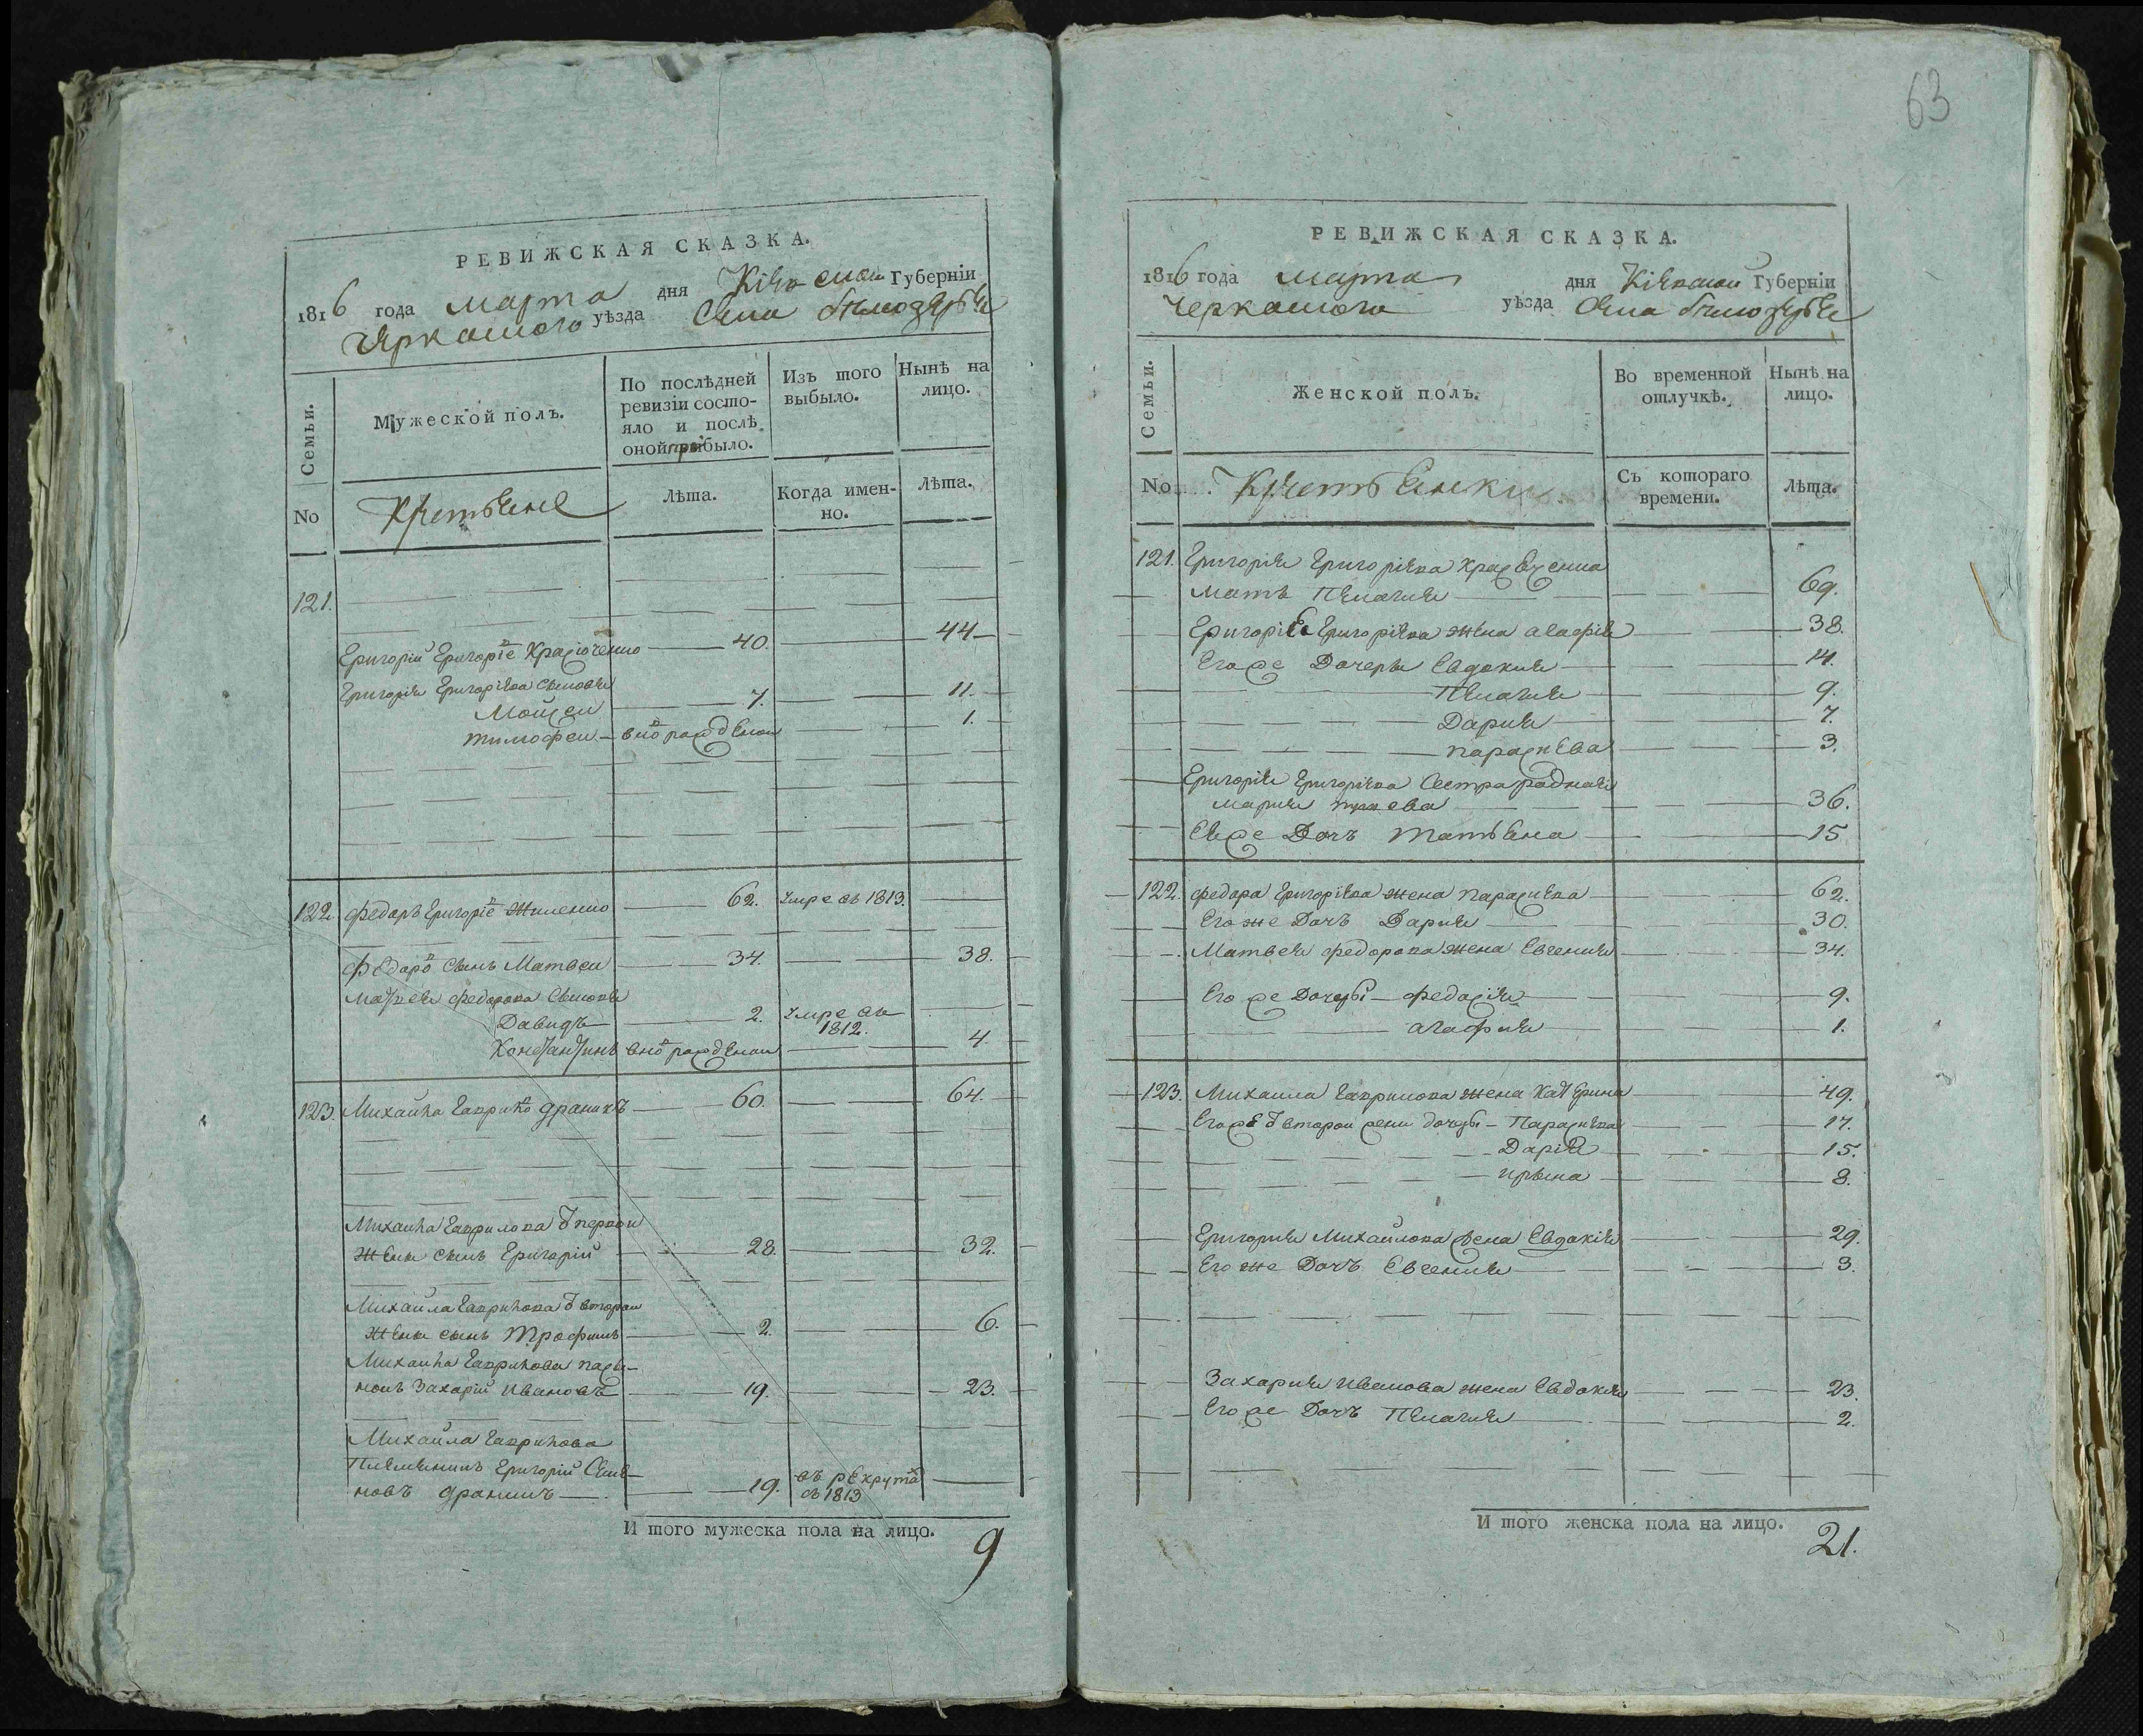 РЕВИЖСКАЯ СКАЗКА.
1816 года марта дня Кіевской Губерніи
Черкаского уѣзда Села Белозерья
Семьи.
Мужеской полъ.
По послѣдней
ревизіи состо-
яло и послѣ
оной прибыло.
Изъ того
выбыло.
Нынѣ на
лицо.
No
Крестьяне
Лѣта.
Когда имен-
но.
Лѣта.
121.
Григорій Григоріе Красюченко 40. 44
Григорія Григоріева Сыновья
Мойсей 7. 11.
Тимофей вно рожденой 1.
122. Федоръ Григоріе Жиленко 62. умре въ 1813.
Федоро Сынъ Матвей 34. 38.
Матвея Федорова Сыновья
Давидъ 2. умре въ
1812.
Константинъ вно рожденой 4.
123. Михайла Гаврило 60. 64.
Михайла Гаврилова от первой
жены сынъ Григорій 28. 32.
Михайла Гаврилова от второй
жены сынъ Трофимъ 2. 6.
Михайла Гаврилова пасы-
нокъ Захарій Ивановъ 19. 23.
Михайла Гаврилова
Племянникъ Григорій Семе-
новъ 19. въ рекрута
въ 1813
И того мужеска пола на лицо. 9
63
РЕВИЖСКАЯ СКАЗКА.
1816 года марта дня Кіевской Губерніи
Черкаского уѣзда Села Белозерья
Семьи.
Женской полъ.
Во временной
отлучкѣ.
Нынѣ на
лицо.
No
Крестьянки
Съ котораго
времени.
Лѣта.
121. Григорія Григоріева Красюченка
мать Пелагия 69.
Григорія Григоріева жена Агафія 38.
Егоже Дочеры Евдокия 14.
Пелагия 9.
Дария 7.
Параскева 3.
Григорія Григоріева Сестра родная
Мария 36.
Еяже Дочъ Татьяна 15
122. Федора Григоріева жена Параскева 62.
Егоже Дочъ Дария 30.
Матвея Федорова жена Евгения 34.
Егоже Дочеры Федосія 9.
Агафия 1.
123. Михаила Гаврилова жена Катерина 49.
Егоже от второй жени дочеры Параскева 17.
Дарія 15.
Ирына 8.
Григория Михайлова жена Евдокія 29.
Егоже Дочъ Евгения 3.
Захария Иванова жена Евдокия 23.
Егоже Дочъ Пелагия 2.
И того женска пола на лицо. 21.